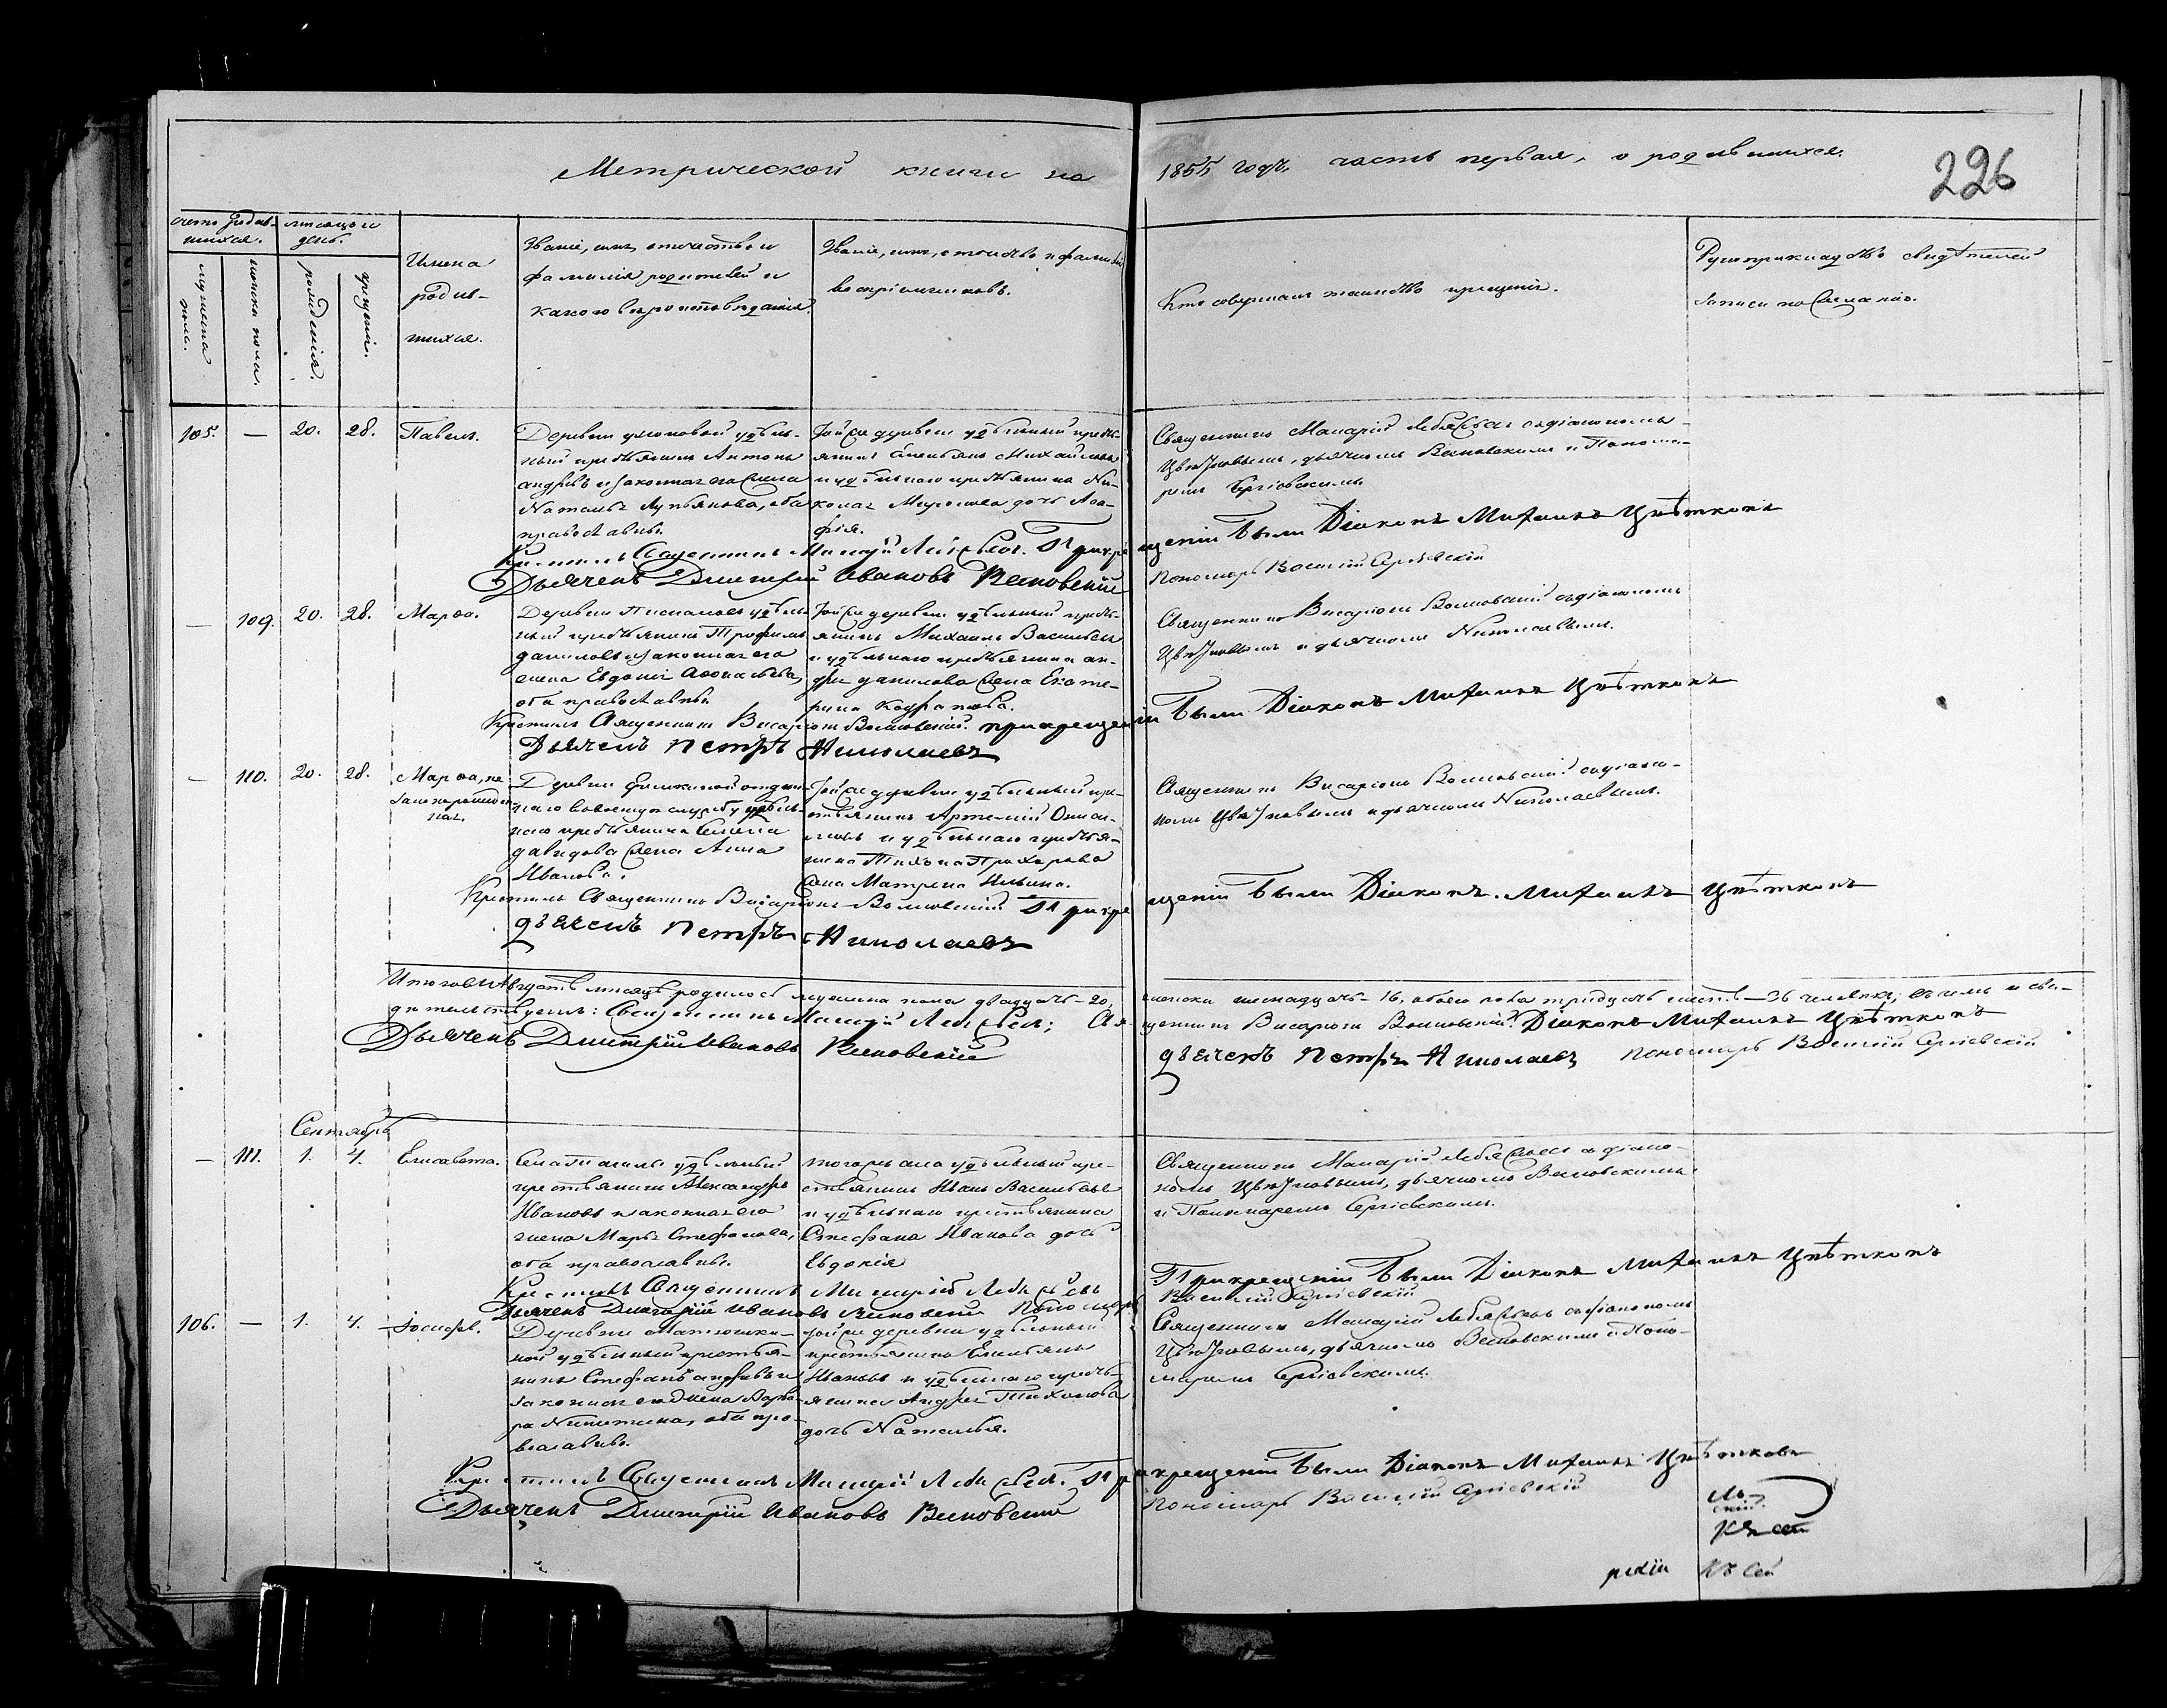 Метрической книги на 1855 годъ, часть первая, о родившихся.
226
счетъ родив-
шихся.
мужеска
пола.
женска пола.
мѣсяцъ и
день.
рожденія.
крещенія.
Имена
родив-
шихся.
Званіе, имя, отчество и
фамилія родителей и
какого вѣроисповѣданія.
Званіе, имя, отчество и фамилія
воспріемниковъ.
Кто совершалъ таинство крещенія.
Рукоприкладство свидѣтелей
записи по желанію.
105. — 20. 28. Павелъ.
Деревни удѣль-
ный крестьянинъ Антонъ
Андреевъ и законная его жена
Наталья Лукьянова, оба
православные.
Той же деревни удѣльный кресть-
янинъ Емельянъ Михайловъ
и удѣльнаго крестьянина Ни-
колая дочь Ага-
фія.
Священникъ Макарій Лебяжьев съ діакономъ
Цвѣтковымъ, дьячкомъ Весновскимъ и Поно-
маремъ Сергіевскимъ
Крестилъ Священникъ Макарій Лебяжьев. При крещеніи были Діаконъ Михаилъ Цвѣтковъ
Дьячекъ Димитрій Ивановъ Весновскій Пономарь Василій Сергіевскій
— 109. 20. 28. Марѳа.
Деревни удѣль-
ный крестьянинъ Трофимъ
Даниловъ и законная его
жена Евдокія Аѳонасьева,
оба православные.
Той же деревни удѣльный кресть-
янинъ Михаилъ Васильевъ
и удѣльнаго крестьянина Ан-
дрея Данилова жена Екате-
рина Кодратова.
Священникъ Висаріонъ съ діакономъ
Цвѣтковымъ и дьячкомъ Николаевымъ.
Крестилъ Священникъ Висаріонъ При крещеніи были Діаконъ Михаилъ Цвѣтковъ
Дьячекъ Петръ Николаевъ
— 110. 20. 28. Марѳа, не
законорожден-
ная.
Деревни отдан-
наго в военную службу удѣль-
наго крестьянина Семена
Давидова жена Анна
Иванова.
Той же деревни удѣльный кре-
стьянинъ Артемій
и удѣльнаго крестья-
нина Тихона Прохорова
жена Матрена Ильина.
Священникъ Висаріонъ съ діако-
номъ Цвѣтковымъ и дьячкомъ Николаевымъ.
Крестилъ Священникъ Висаріонъ При крещеніи были Діаконъ Михаилъ Цвѣтковъ
дьячекъ Петръ Николаевъ
Итого въ Августѣ мѣсяцѣ родилось мужеска пола двадцать – 20, женска шестнадцать – 16, обоего пола тридцать шесть – 36 человѣкъ; въ чемъ и сви-
дѣтельствуемъ: Священникъ Макарій Лебяжьев; Священникъ Висаріонъ Діаконъ Михаилъ Цвѣтковъ
Дьячекъ Димитрій Ивановъ Весновскій дьячекъ Петръ Николаевъ Пономарь Василій Сергіевскій
Сентябрь
— 111. 1. 4. Елисавета.
Села удѣльный
крестьянинъ Александръ
Ивановъ и законная его
жена Марья Стефанова,
оба православные.
того же села удѣльный кре-
стьянинъ Иванъ Васильевъ
и удѣльнаго крестьянина
Стефана Иванова дочь
Евдокія
Священникъ Макарій Лебяжьев съ діако-
номъ Цвѣтковымъ, дьячкомъ Весновскимъ
и Пономаремъ Сергіевскимъ.
Крестилъ Священникъ Макарій Лебяжьевъ При крещеніи были Діаконъ Михаилъ Цвѣтковъ
Дьячекъ Димитрій Ивановъ Весновскій Пономарь Василій Сергіевскій
106. — 1. 4. Іосифъ.
Деревни Матюшки-
ной удѣльный крестья-
нинъ Стефанъ Андреевъ и
законная его жена Варва-
ра Никитина, оба пра-
вославные.
Той же деревни удѣльный
крестьянинъ Емельянъ
Ивановъ и удѣльнаго кресть-
янина Андрея Тихонова
дочь Наталья.
Священникъ Макарій Лебяжьевъ съ діакономъ
Цвѣтковымъ, дьячкомъ Весновскимъ и Поно-
маремъ Сергіевскимъ.
Крестилъ Священникъ Макарій Лебяжьев. При крещеніи были Діаконъ Михаилъ Цвѣтковъ
Дьячекъ Димитрій Ивановъ Весновскій Пономарь Василій Сергіевскій